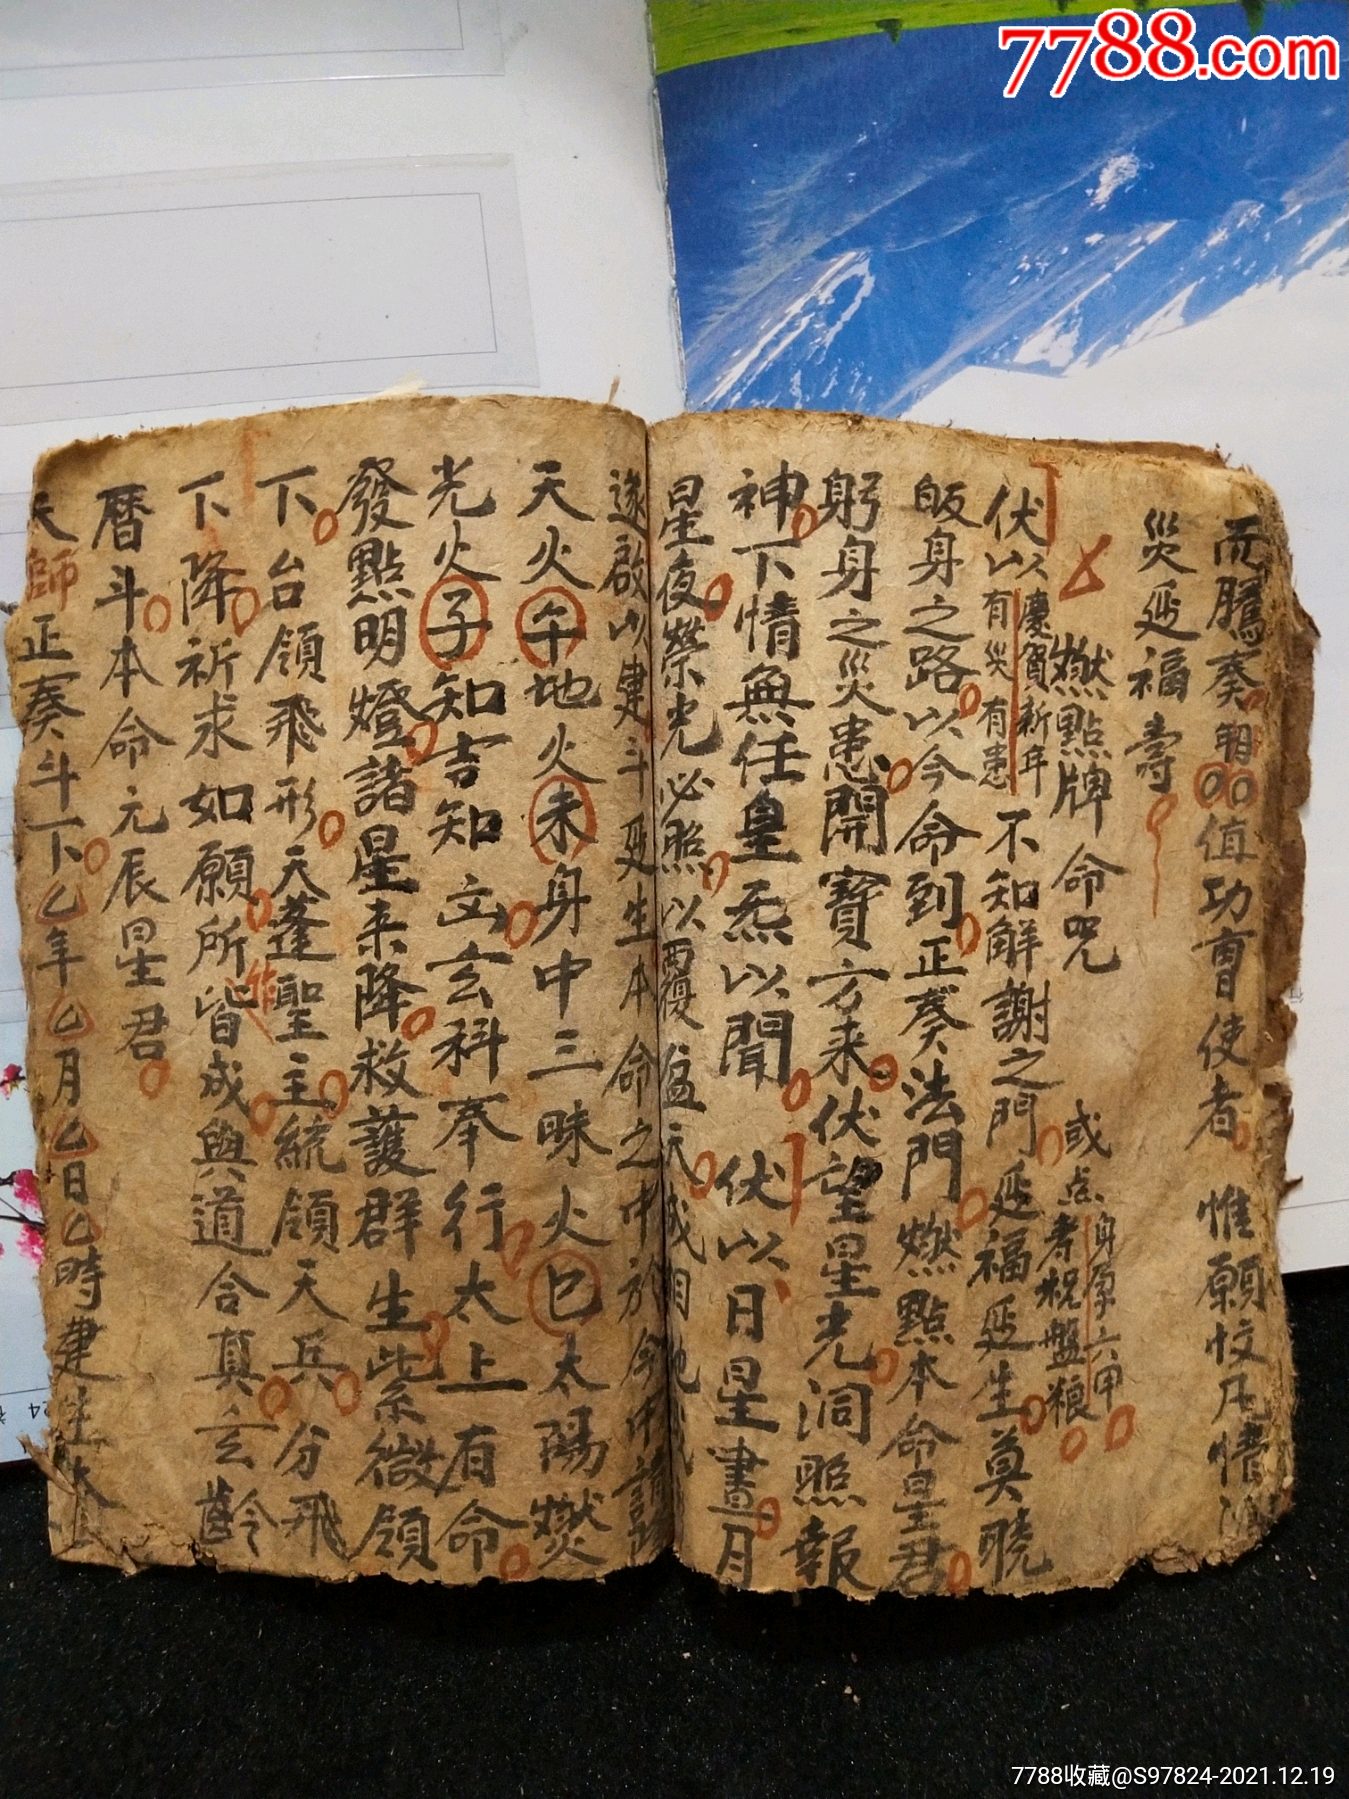 7788.com
而騰奏明值功曹使者惟願
災延福壽
燃點牌命咒 或点者祝盤粮 身原六甲
伏以 慶賀新年 有災有患 不知解謝之門延福延生莫曉
皈身之路以今命到正奏法門燃點本命星君
躬身之災患開寶方来伏望星光洞照報
神下情無任皇炁以聞 伏以日星晝月
星夜榮光必照以覆 天成
遂啟以建斗延生本命之中方今中
天火午地火未身中三昧火巳太陽燃
光火子知吉知玄科奉行太上有命
發點明燈諸星来降救護群生紫微領
下台領飛形天蓬聖主統領天兵分飛
下降祈求如願所皆成與道合真玄齡
曆斗本命元辰星君
天師正奏斗下乙年乙月乙日乙時建生
7788收藏@S97824-2021.12.19